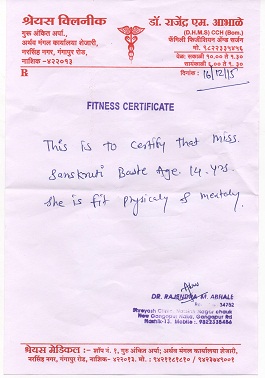 श्रेयस क्लिनीक
गुरू अंकित अर्पा.,
अर्थव मंगल कार्यालया शेजारी,
नरसिंह नगर, गंगापूर रोड,
नाशिक-४२२०१३
डॉ. राजेंद्र एम. आभाळे
(D.H.M.S) CCH (Bom.)
फॅमिली फिजीशियन अॅण्ड सर्जन
मो. ९८२२३३५४५६
वेळ: सकाळी १०.०० ते १.३०
सायंकाळी ६.०० ते ९.३०
दिनांक : 16/12/15
R
FITNESS CERTIFICATE
This is to certify that miss.
Sanskruti Baste Age. 14. yrs.
she is fit physicaly & mentaly.
DR. RAJENDRA M. ABHALE
34752
Shreyash Clinic,
New Gangapur Naka, Gangapur Rd
Nashik-13. Mobile : 9822335456
श्रेयस मेडिकल :- शॉप नं. १, गुरू अंकित अर्पा; अर्थव मंगल कार्यालया शेजारी,
नरसिंह नगर, गंगापूर रोड, नाशिक- ४२२०१३. मो.